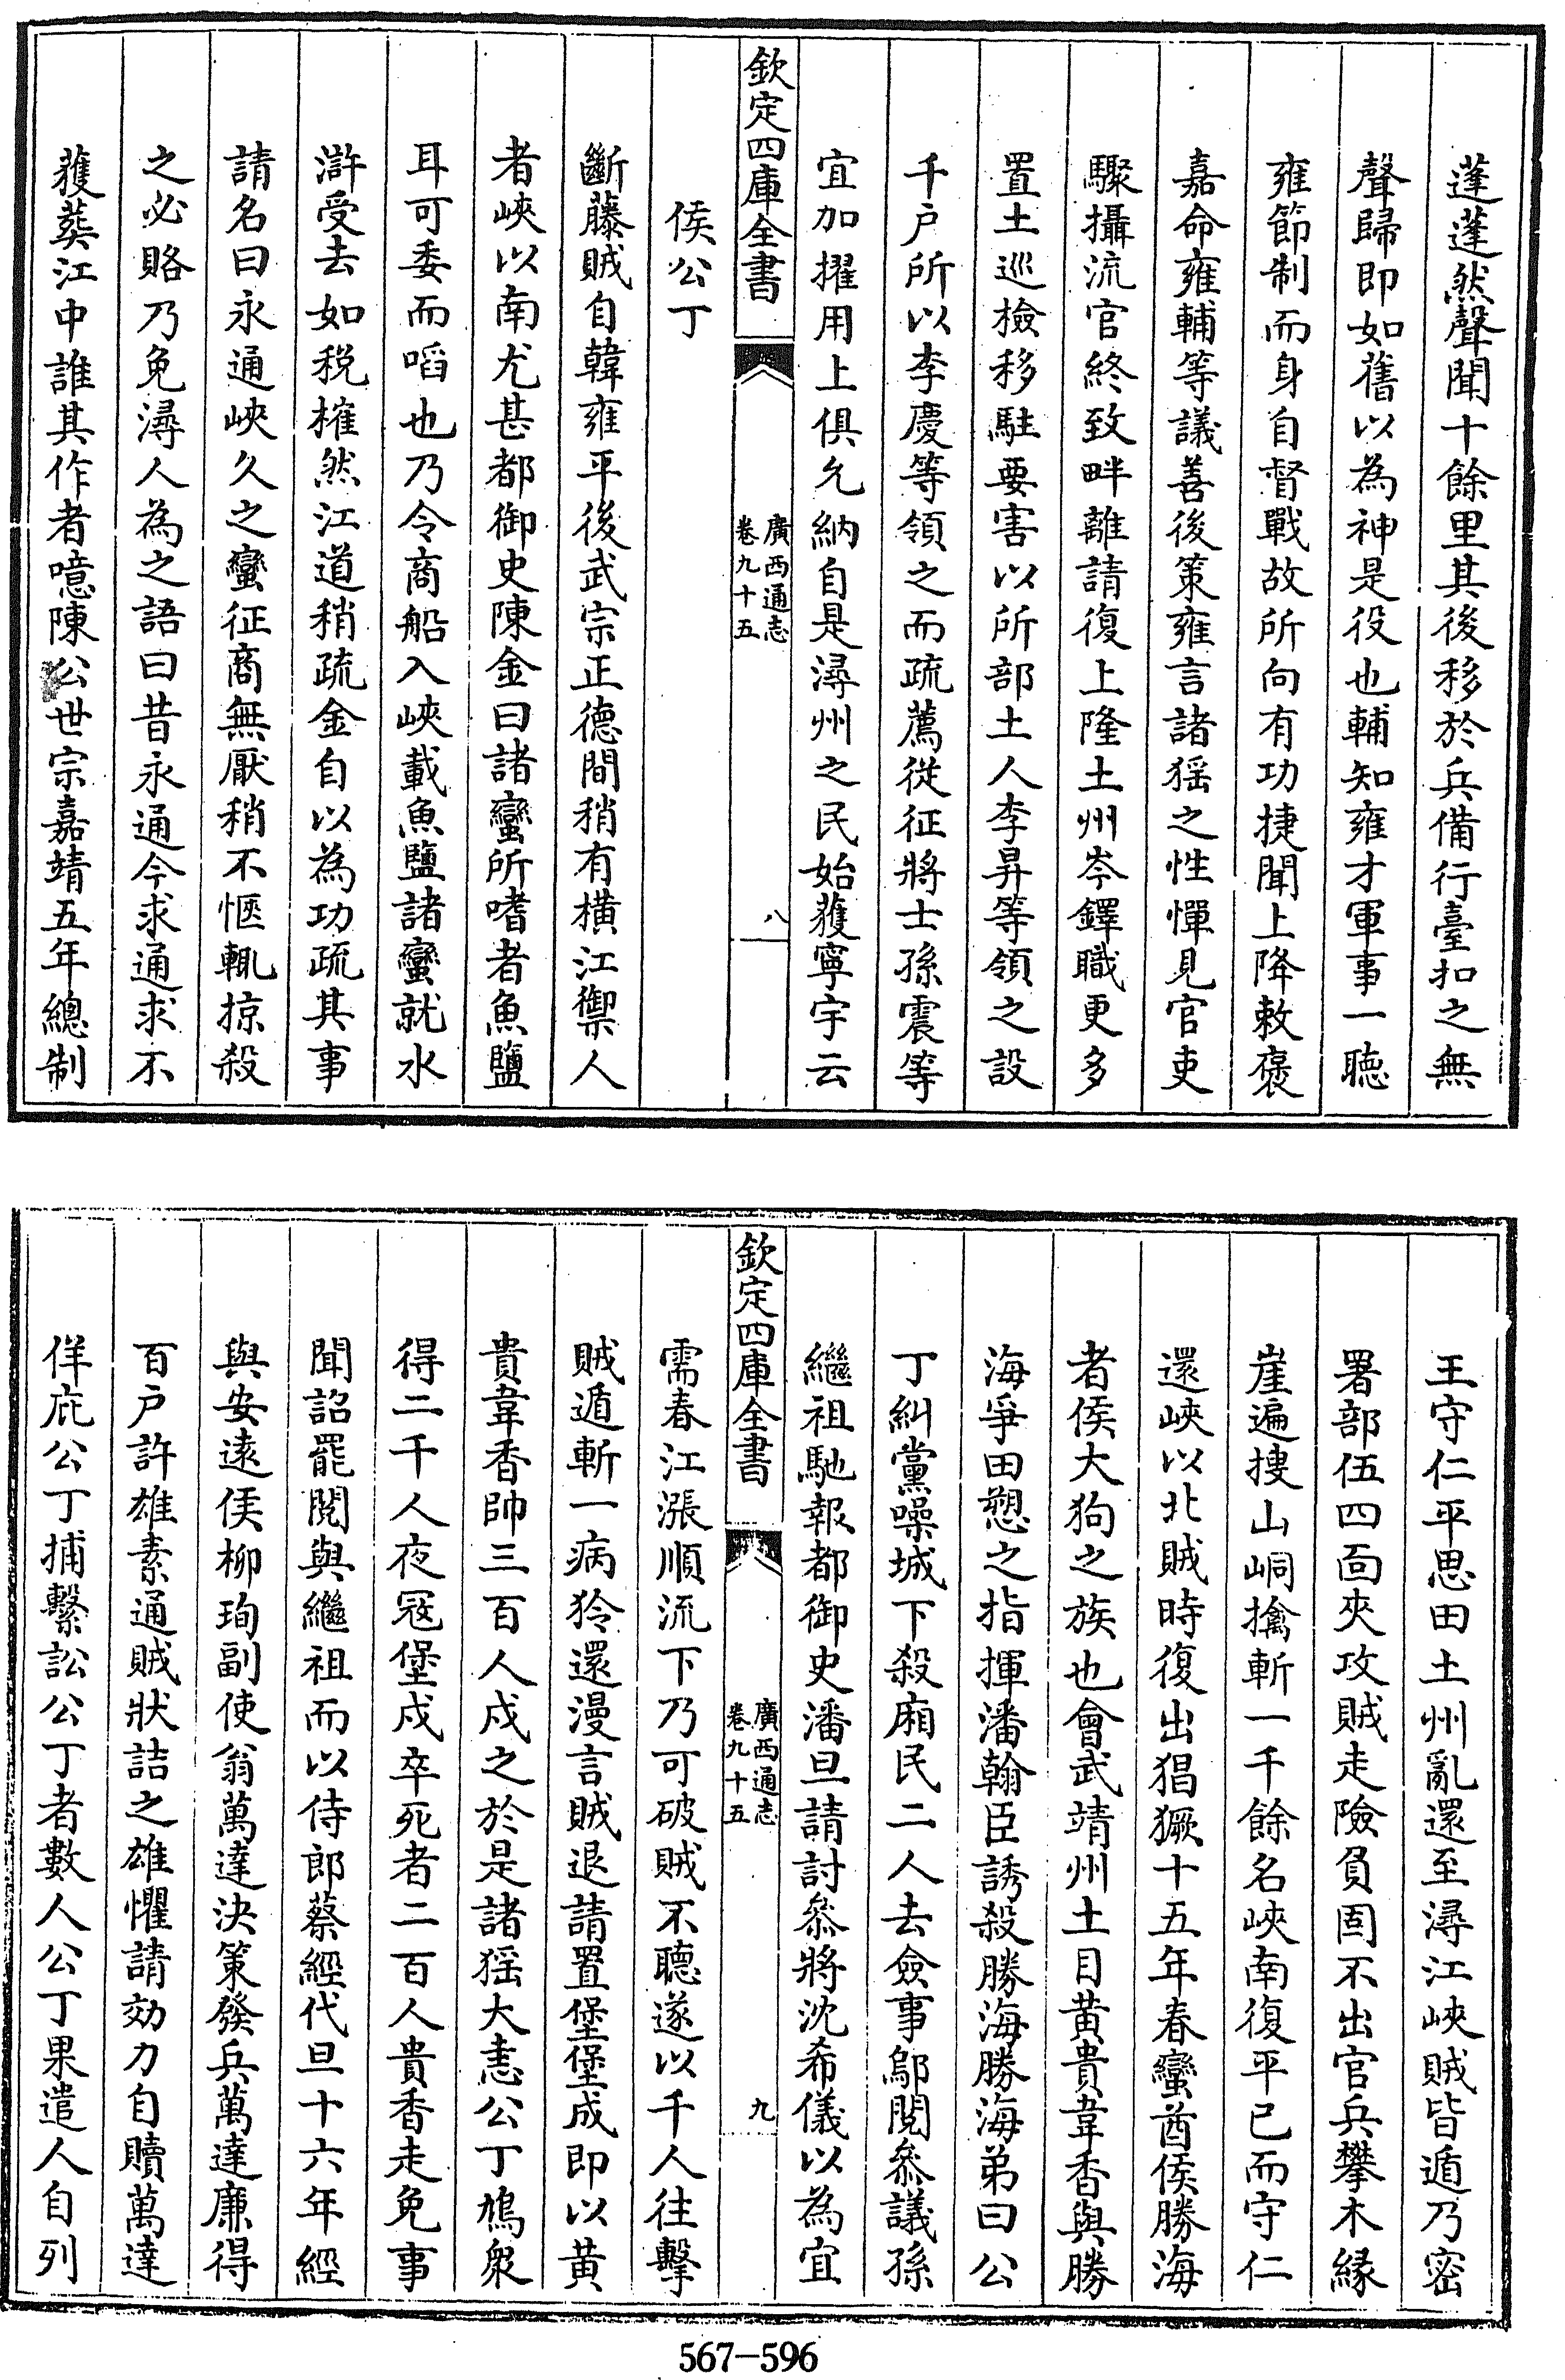 蓬蓬然聲聞十餘里其後移於兵備行臺扣之無
聲歸即如舊以為神是役也輔知雍才軍事一聴
雍節制而身自督戰故所向有功捷聞上降敕褒
嘉命雍輔等議善後策雍言諸猺之性憚見官吏
驟攝流官終致畔離請復上隆土州岑鐸職更多
置土巡檢移駐要害以所部土人李昇等領之設
千户所以李慶等領之而疏薦從征將士孫震等
宜加擢用上俱允納自是潯州之民始獲寧宇云
欽定四庫全書
廣西通志
卷九十五
八
侯公丁
斷藤賊自韓雍平後武宗正德間稍有橫江禦人
者峽以南尤甚都御史陳金曰諸蠻所嗜者魚鹽
耳可委而啗也乃令商船入峽載魚鹽諸蠻就水
滸受去如税榷然江道稍疏金自以為功疏其事
請名曰永通峽久之蠻征商無厭稍不愜輒掠殺
之必賂乃免潯人為之語曰昔永通今求通求不
獲葬江中誰其作者噫陳公世宗嘉靖五年總制
王守仁平思田土州亂還至潯江峽賊皆遁乃密
署部伍四面夾攻賊走險負固不出官兵攀木縁
崖遍搜山峒擒斬一千餘名峽南復平已而守仁
還峽以北賊時復出猖獗十五年春蠻酋侯勝海
者侯大狗之族也會武靖州土目黄貴韋香與勝
海爭田愬之指揮潘翰臣誘殺勝海勝海弟曰公
丁糾黨噪城下殺廂民二人去僉事鄔閱叅議孫
繼祖馳報都御史潘旦請討叅將沈希儀以為宜
欽定四庫全書
廣西通志
卷九十五
九
需春江漲順流下乃可破賊不聽遂以千人往擊
賊遁斬一病狑還漫言賊退請置堡堡成即以黄
貴韋香帥三百人戍之於是諸猺大恚公丁鳩衆
得二千人夜冦堡戍卒死者二百人貴香走免事
聞詔罷閱與繼祖而以侍郎蔡經代旦十六年經
與安遠侯柳珣副使翁萬達決策發兵萬達廉得
百户許雄素通賊狀詰之雄懼請効力自贖萬達
佯庇公丁捕繫訟公丁者數人公丁果遣人自列
567-596